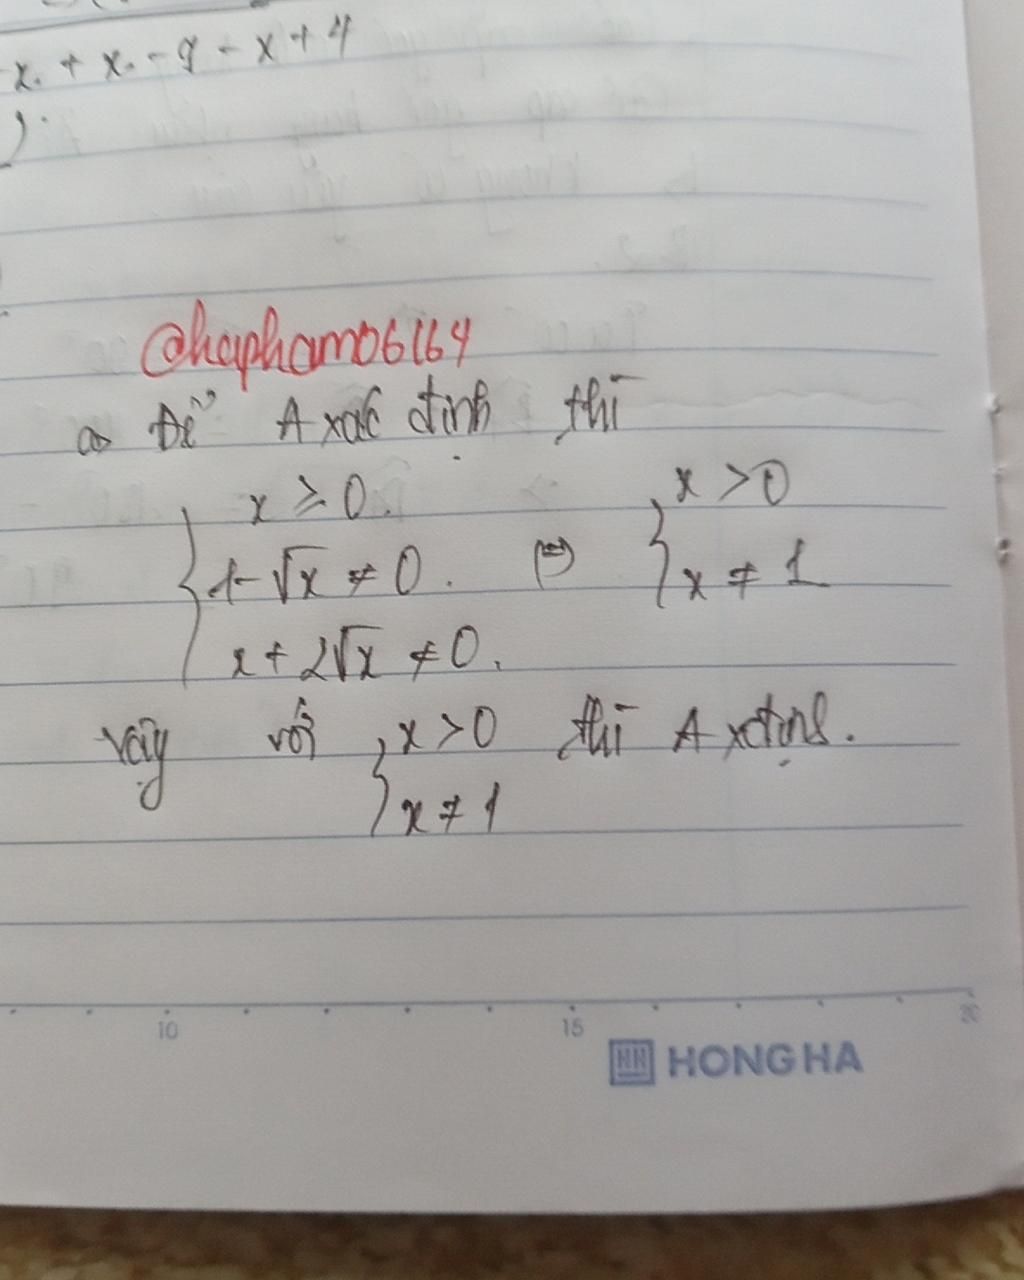 x. + x. - 9 - x + 4
@hapham06164
a) Để A xác định thì
{ x ≥ 0. 
1 - √x ≠ 0. (=) { x > 0
x + 2√x ≠ 0. x ≠ 1
Vậy với { x > 0 thì A xđịnh.
x ≠ 1
10 15 20
HH HONG HA